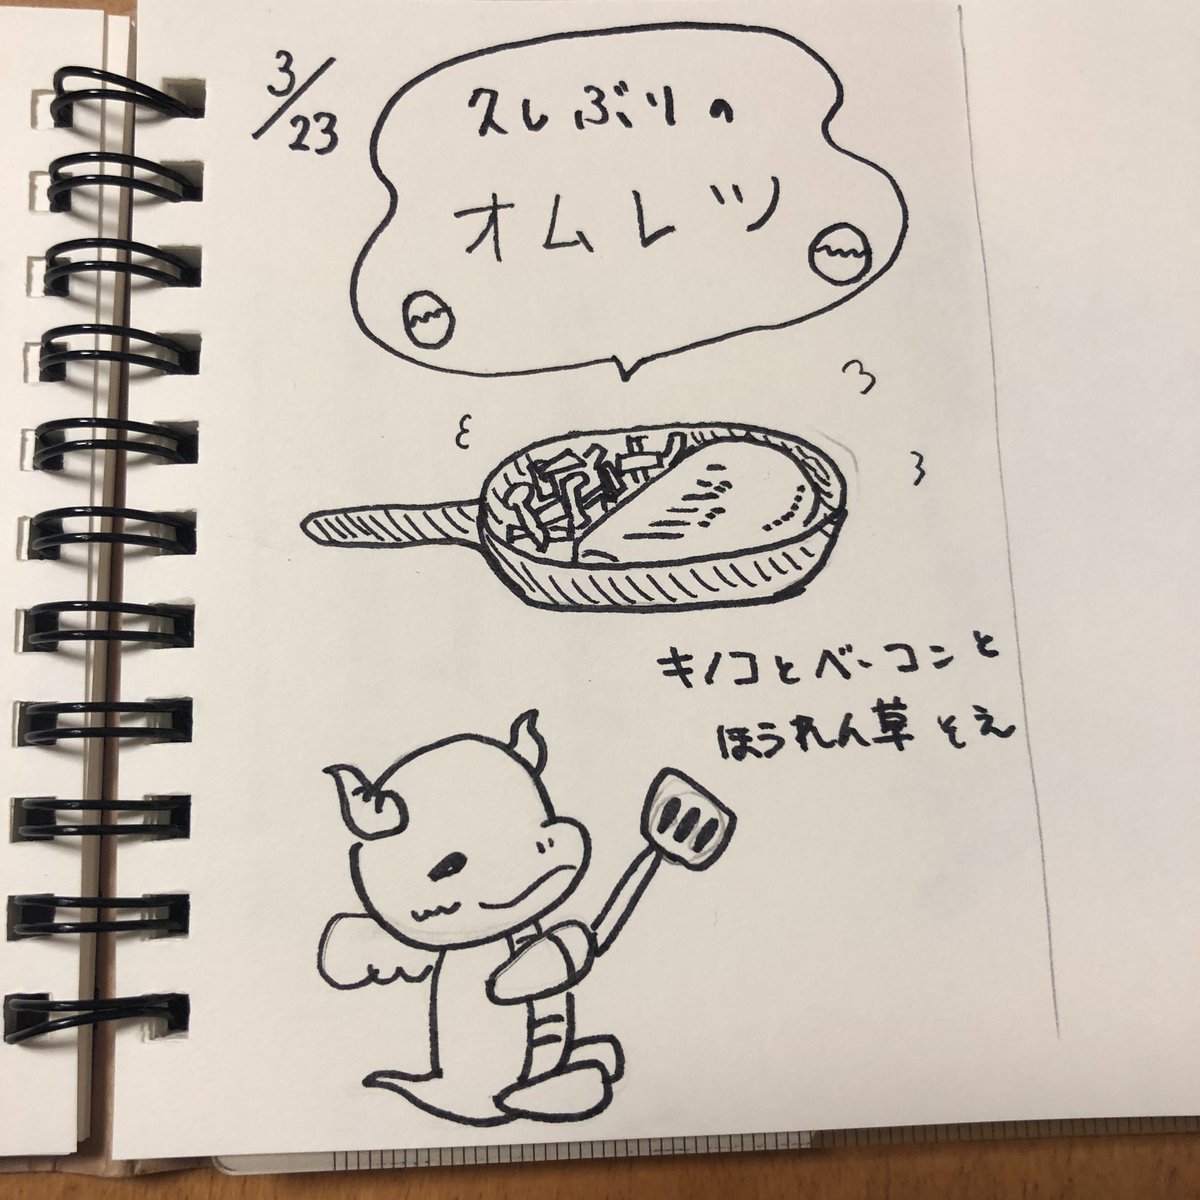 3/23
久しぶりの
オムレツ
キノコとベーコンと
ほうれん草そえ